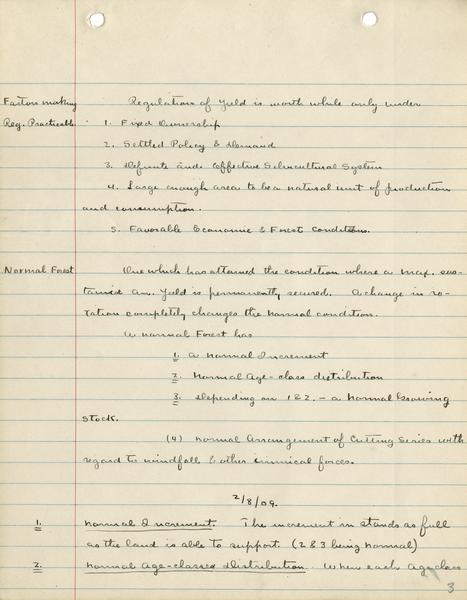 Factors making Regulation of Yield is worth while only under
Reg. Practicable 1. Fixed Ownership
2. Settled Policy & Demand
3. Definite and Effective Silvicultural System
4. Large enough area to be a natural unit of production
and consumption.
5. Favorable Economic & Forest Conditions.
Normal Forest One which has attained the condition where a max. sus-
tained an. Yield is permanently secured. A change in ro-
tation completely changes the normal condition.
A normal Forest has
1. a normal Increment
2. normal Age-class distribution
3. Depending on 1 & 2. - a normal Growing
stock.
(4) normal Arrangement of Cutting Series with
regard to windfall & other inimical forces.
2/8/09.
1. normal Increment. The increment in stands as full
as the land is able to support. (2 & 3 being normal)
2. normal Age-classes Distribution. When each Ageclass
3